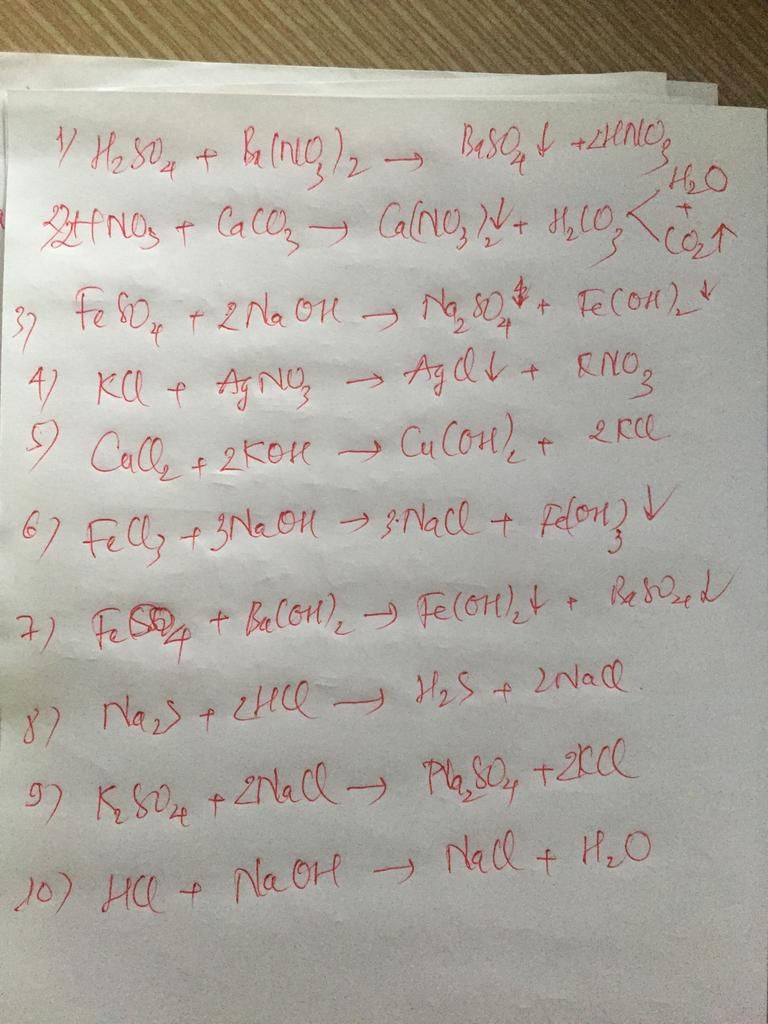 1) H₂SO₄ + Ba(NO₃)₂ → BaSO₄↓ + 2HNO₃
2) 2HNO₃ + CaCO₃ → Ca(NO₃)₂↓ + H₂CO₃ < H₂O + CO₂↑
3) FeSO₄ + 2NaOH → Na₂SO₄ + Fe(OH)₂↓
4) KCl + AgNO₃ → AgCl↓ + KNO₃
5) CaCl₂ + 2KOH → Cu(OH)₂ + 2KCl
6) FeCl₃ + 3NaOH → 3NaCl + Fe(OH)₃↓
7) FeSO₄ + Ba(OH)₂ → Fe(OH)₂↓ + BaSO₄↓
8) Na₂S + 2HCl → H₂S + 2NaCl
9) K₂SO₄ + 2NaCl → Na₂SO₄ + 2KCl
10) HCl + NaOH → NaCl + H₂O